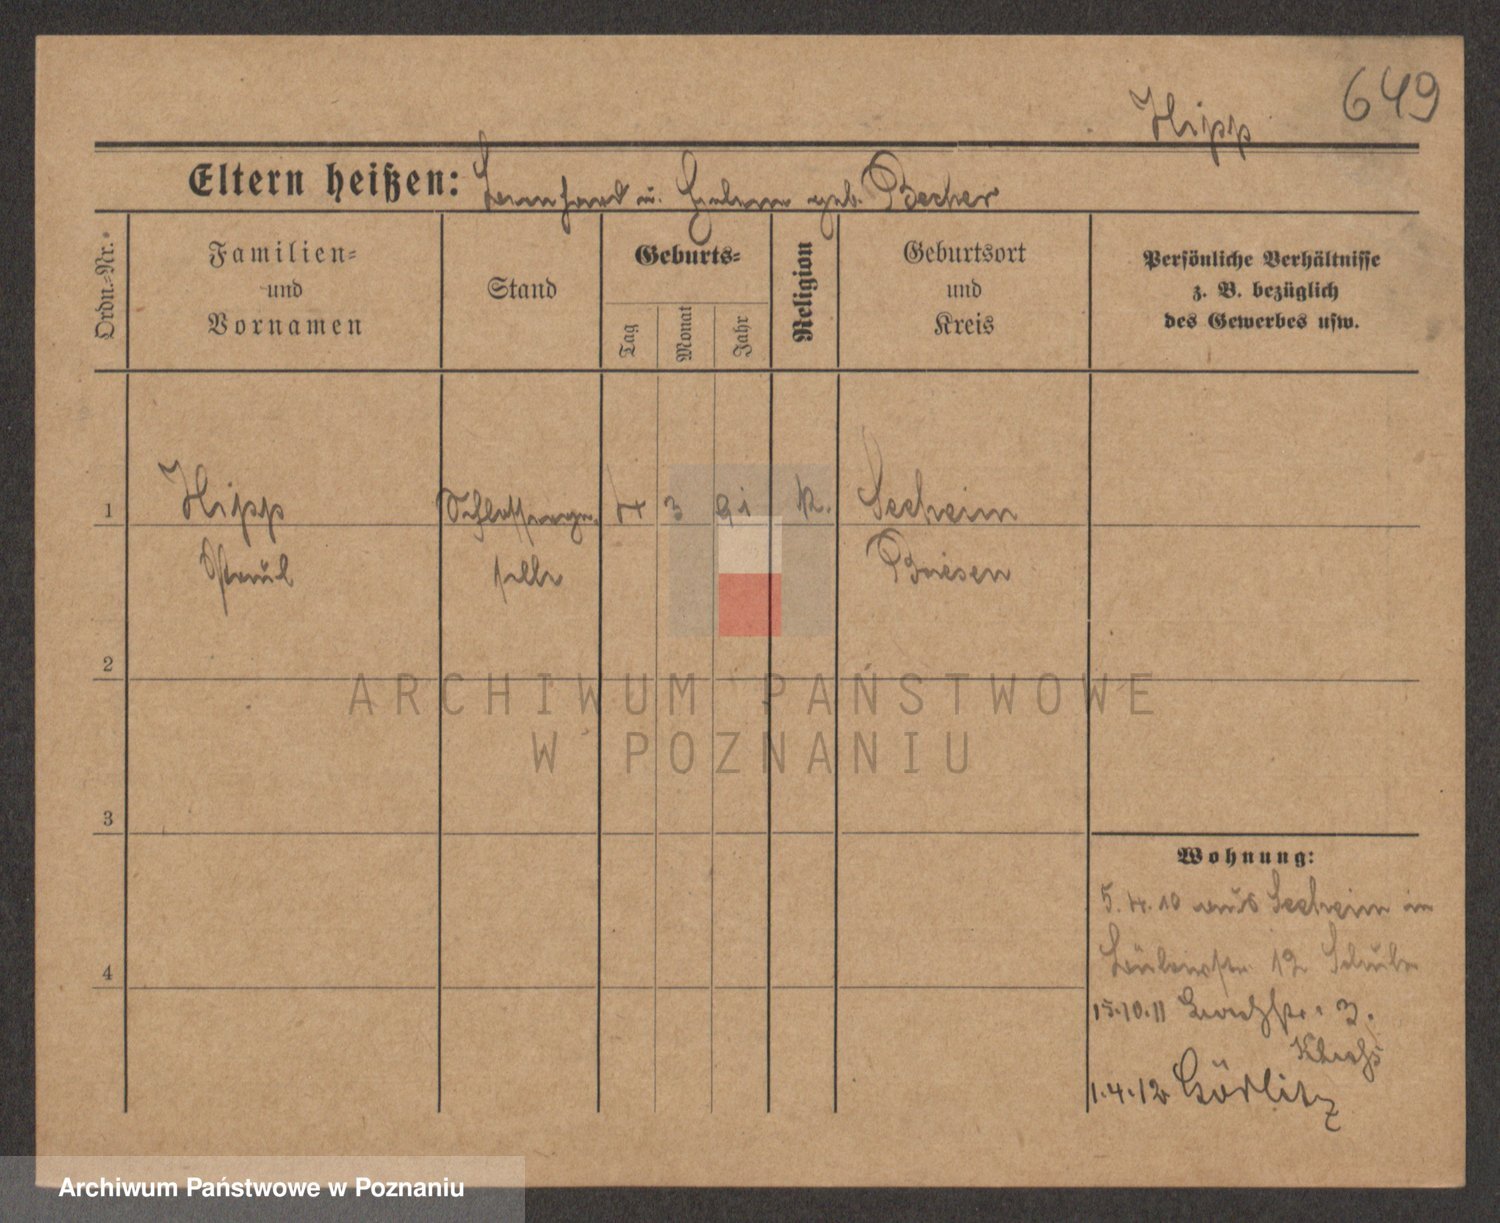 649
Hipp
Eltern heißen: Bernhard u. Helene geb. Becher
Ordn.-Nr.
Familien-
und
Vornamen
Stand
Geburts-
Tag
Monat
Jahr
Religion
Geburtsort
und
Kreis
Persönliche Verhältnisse
z. B. bezüglich
des Gewerbes usw.
1 Hipp Schlosserge- 4 3 91 k. Seeheim
Paul selle Briesen
2
3
4
Wohnung:
5.4.10 aus Seeheim in
12
15.10.11 3.
1.4.12 Görlitz
ARCHIWUM PAŃSTWOWE
W POZNANIU
Archiwum Państwowe w Poznaniu